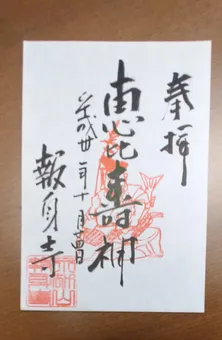 奉拝
恵比寿神
平成廿二年十月十四日
報身寺